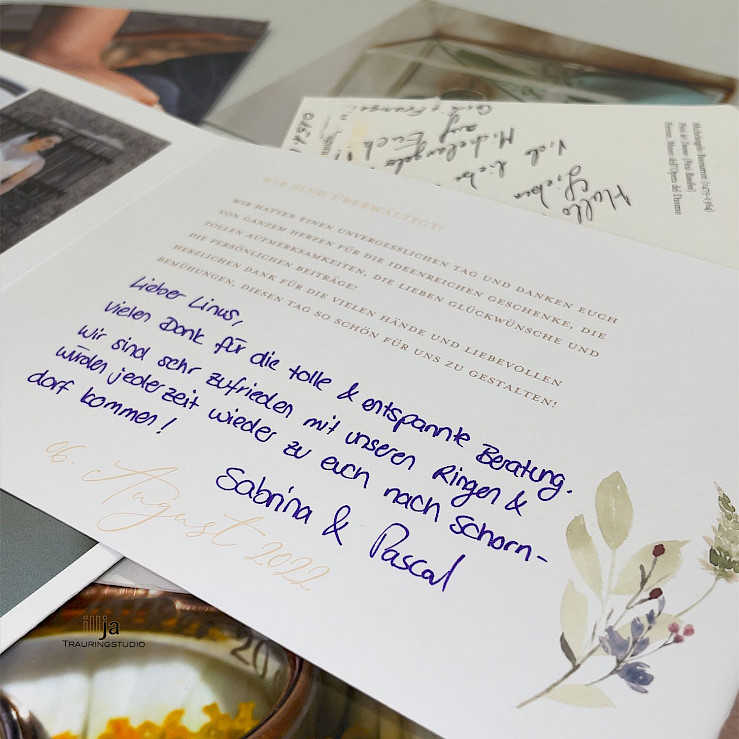 WIR SIND ÜBERWÄLTIGT!
WIR HATTEN EINEN UNVERGESSLICHEN TAG UND DANKEN EUCH
VON GANZEM HERZEN FÜR DIE IDEENREICHEN GESCHENKE, DIE
TOLLEN AUFMERKSAMKEITEN, DIE LIEBEN GLÜCKWÜNSCHE UND
DIE PERSÖNLICHEN BEITRÄGE!
HERZLICHEN DANK FÜR DIE VIELEN HÄNDE UND LIEBEVOLLEN
BEMÜHUNGEN, DIESEN TAG SO SCHÖN FÜR UNS ZU GESTALTEN!
Lieber Linus,
vielen Dank für die tolle & entspannte Beratung.
Wir sind sehr zufrieden mit unseren Ringen &
würden jederzeit wieder zu euch nach Schorn-
dorf kommen!
Sabrina & Pascal
06. August 2022
Hallo
Lieben
viele liebe
Michelangelo
auf Euch
Michelangelo Buonarroti (1475-1564)
illja
TRAURINGSTUDIO
20